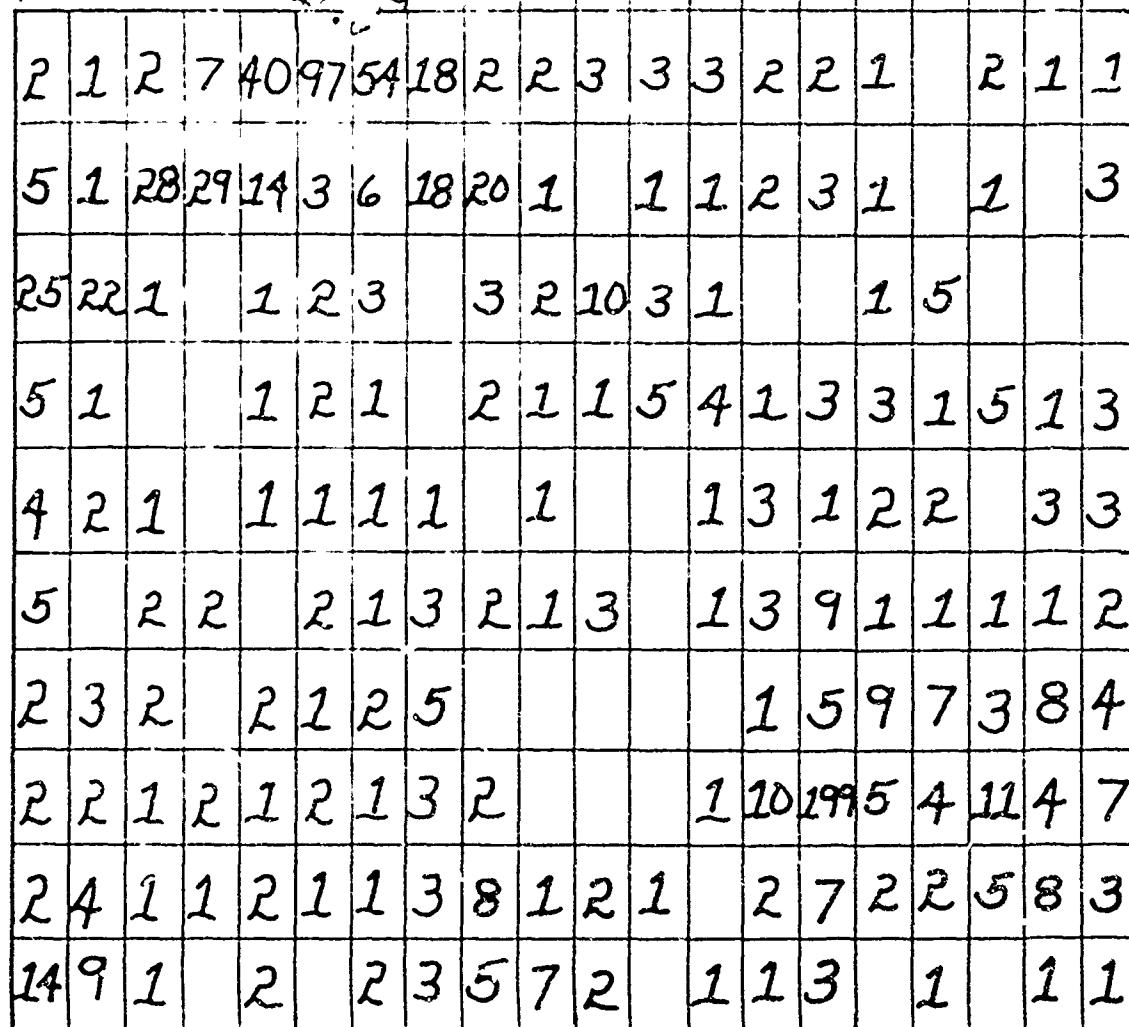 2 1 2 7 40 97 54 18 2 2 3 3 3 2 2 1 2 1 1
5 1 28 29 14 3 6 18 20 1 1 1 2 3 1 1 3
25 22 1 1 2 3 3 2 10 3 1 1 5
5 1 1 2 1 2 1 1 5 4 1 3 3 1 5 1 3
4 2 1 1 1 1 1 1 1 3 1 2 2 3 3
5 2 2 2 1 3 2 1 3 1 3 9 1 1 1 1 2
2 3 2 2 1 2 5 1 5 9 7 3 8 4
2 2 1 2 1 2 1 3 2 1 10 199 5 4 11 4 7
2 4 1 1 2 1 1 3 8 1 2 1 2 7 2 2 5 8 3
14 9 1 2 2 3 5 7 2 1 1 3 1 1 1